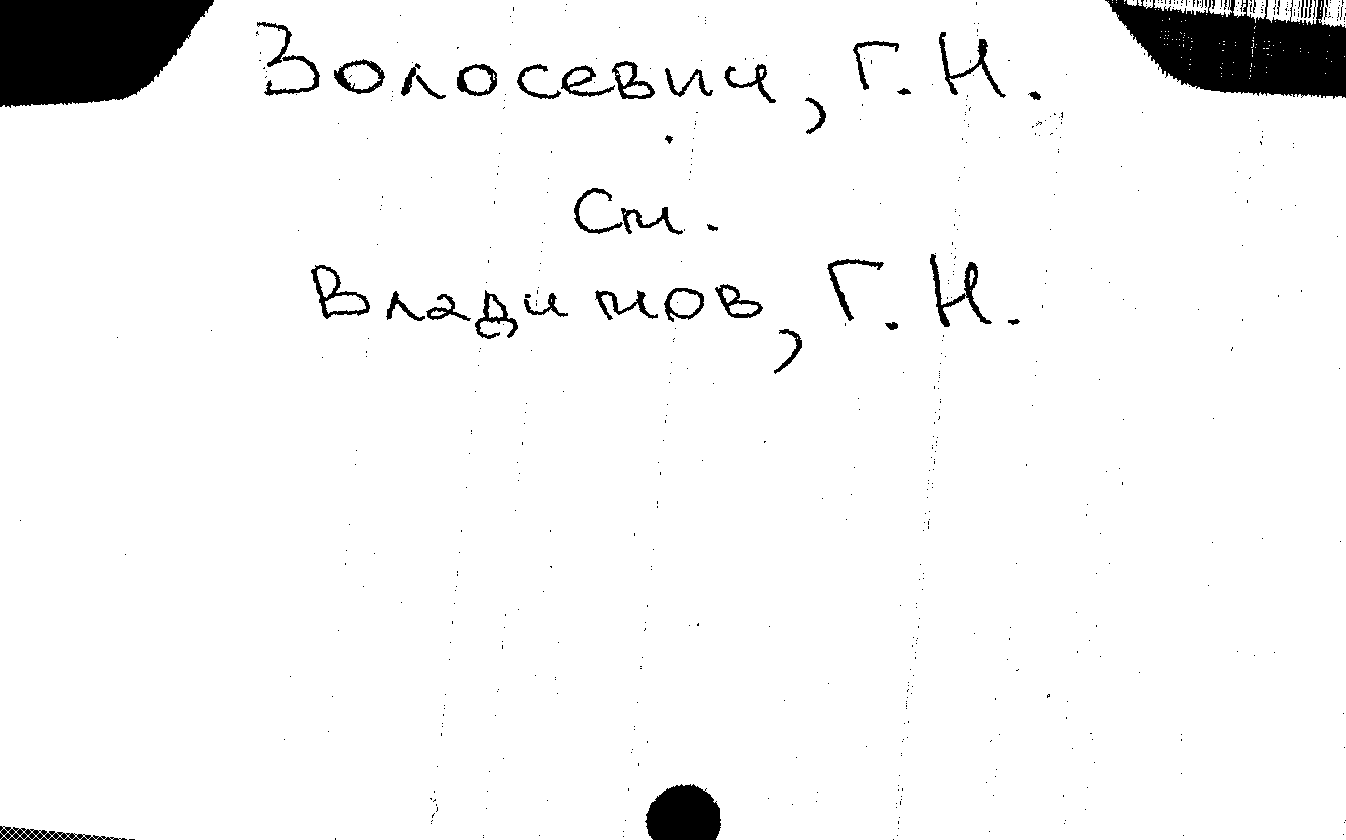 Волосевич, Г. Н.
См.
Владимов, Г. Н.